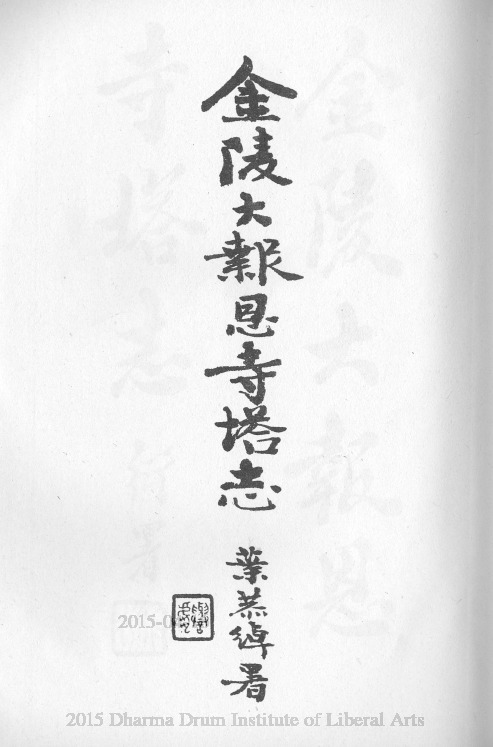 金陵大報恩寺塔志
葉恭綽署
2015-0
2015 Dharma Drum Institute of Liberal Arts